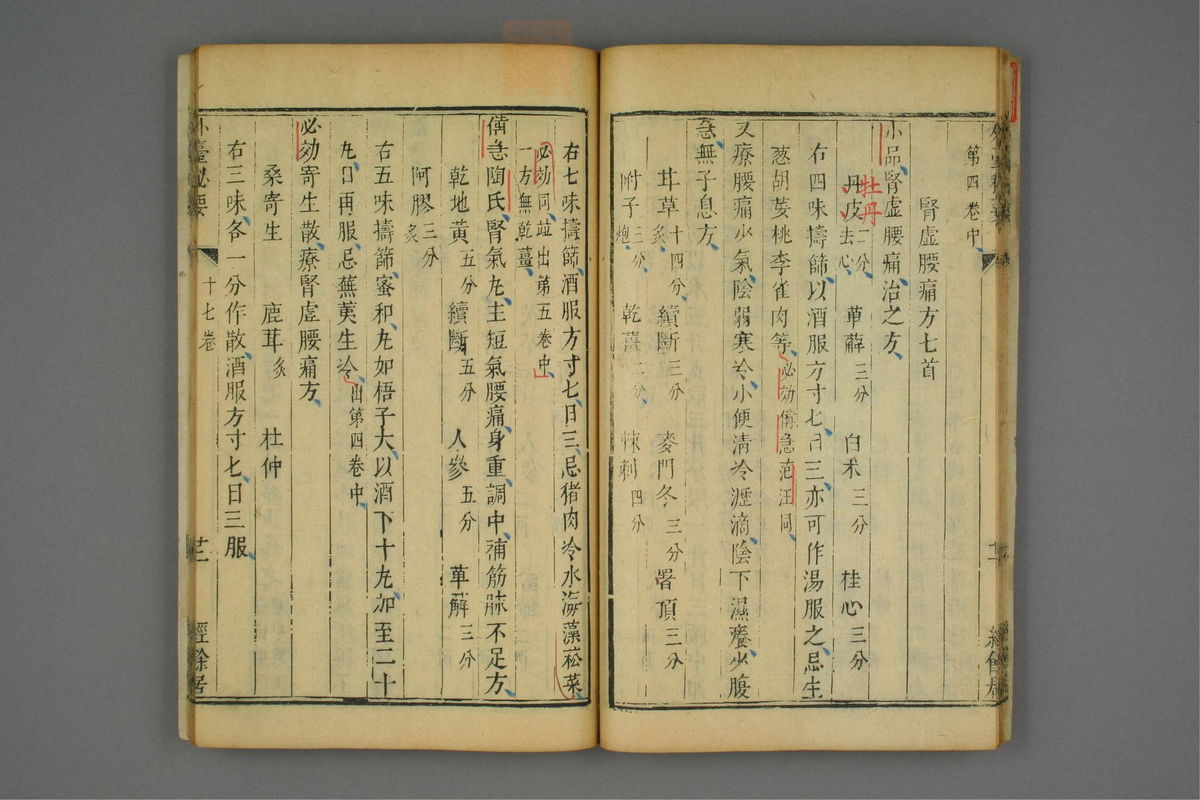 第四卷中
腎虛腰痛方七首
小品腎虛腰痛治之方
牡丹
丹皮二分去心 萆薢三分 白朮三分 桂心三分
右四味擣篩以酒服方寸匕日三亦可作湯服之忌生
葱胡荽桃李雀肉等必効備急范汪同
又療腰痛少氣陰弱寒冷小便清冷瀝滴陰下濕癢少腹
急無子息方
甘草十四分炙 續斷三分 麥門冬三分 署預三分
附子三分炮 乾薑二分 棘刺四分
右七味擣篩酒服方寸匕日三忌猪肉冷水海藻菘菜
必効同竝出第五卷中
一方無乾薑
備急陶氏腎氣丸主短氣腰痛身重調中補筋脉不足方
乾地黃五分 續斷五分 人參五分 萆薢三分
阿膠三分炙
右五味擣篩蜜和丸如梧子大以酒下十丸加至二十
丸日再服忌蕪荑生冷出第四卷中
必効寄生散療腎虛腰痛方
桑寄生 鹿茸炙 杜仲
右三味各一分作散酒服方寸匕日三服
外臺秘要 十七卷 廿一 經餘居